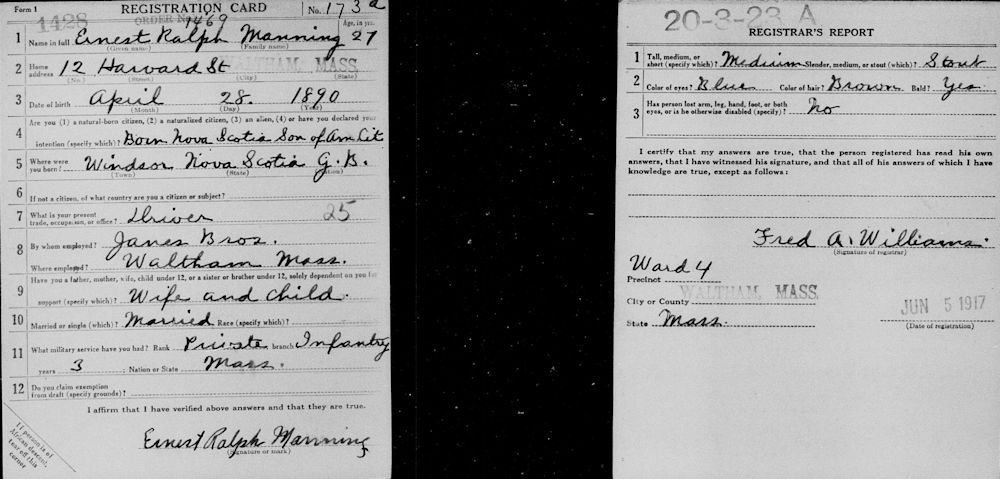 Form 1
REGISTRATION CARD
No. 173 a
1428
ORDER No 1469
Age, in yrs.
1 Name in full Ernest Ralph Manning 27
(Given name) (Family name)
2 Home address 12 Harvard St WALTHAM, MASS.
(No.) (Street) (City) (State)
3 Date of birth April 28. 1890
(Month) (Day) (Year)
Are you (1) a natural-born citizen, (2) a naturalized citizen, (3) an alien, (4) or have you declared your
4 intention (specify which)? Born Nova Scotia Son of Am Cit
5 Where were you born? Windsor Nova Scotia G. B.
(Town) (State)
6 If not a citizen, of what country are you a citizen or subject?
7 What is your present trade, occupation, or office? Driver 25
8 By whom employed? Janes Bros.
Where employed? Waltham Mass.
Have you a father, mother, wife, child under 12, or a sister or brother under 12, solely dependent on you for
9 support (specify which)? Wife and child.
10 Married or single (which)? Married Race (specify which)?
11 What military service have you had? Rank Private branch Infantry
years 3 ; Nation or State Mass.
12 Do you claim exemption from draft (specify grounds)?
I affirm that I have verified above answers and that they are true.
Ernest Ralph Manning
(Signature or mark)
If person is of
African descent,
tear off this
corner
20-3-23 A
REGISTRAR'S REPORT
1 Tall, medium, or short (specify which)? Medium Slender, medium, or stout (which)? Stout
2 Color of eyes? Blue Color of hair? Brown Bald? Yes
3 Has person lost arm, leg, hand, foot, or both eyes, or is he otherwise disabled (specify)? No
I certify that my answers are true, that the person registered has read his own
answers, that I have witnessed his signature, and that all of his answers of which I have
knowledge are true, except as follows:
Fred A. Williams.
(Signature of registrar)
Precinct Ward 4
City or County WALTHAM, MASS.
State Mass.
JUN 5 1917
(Date of registration)